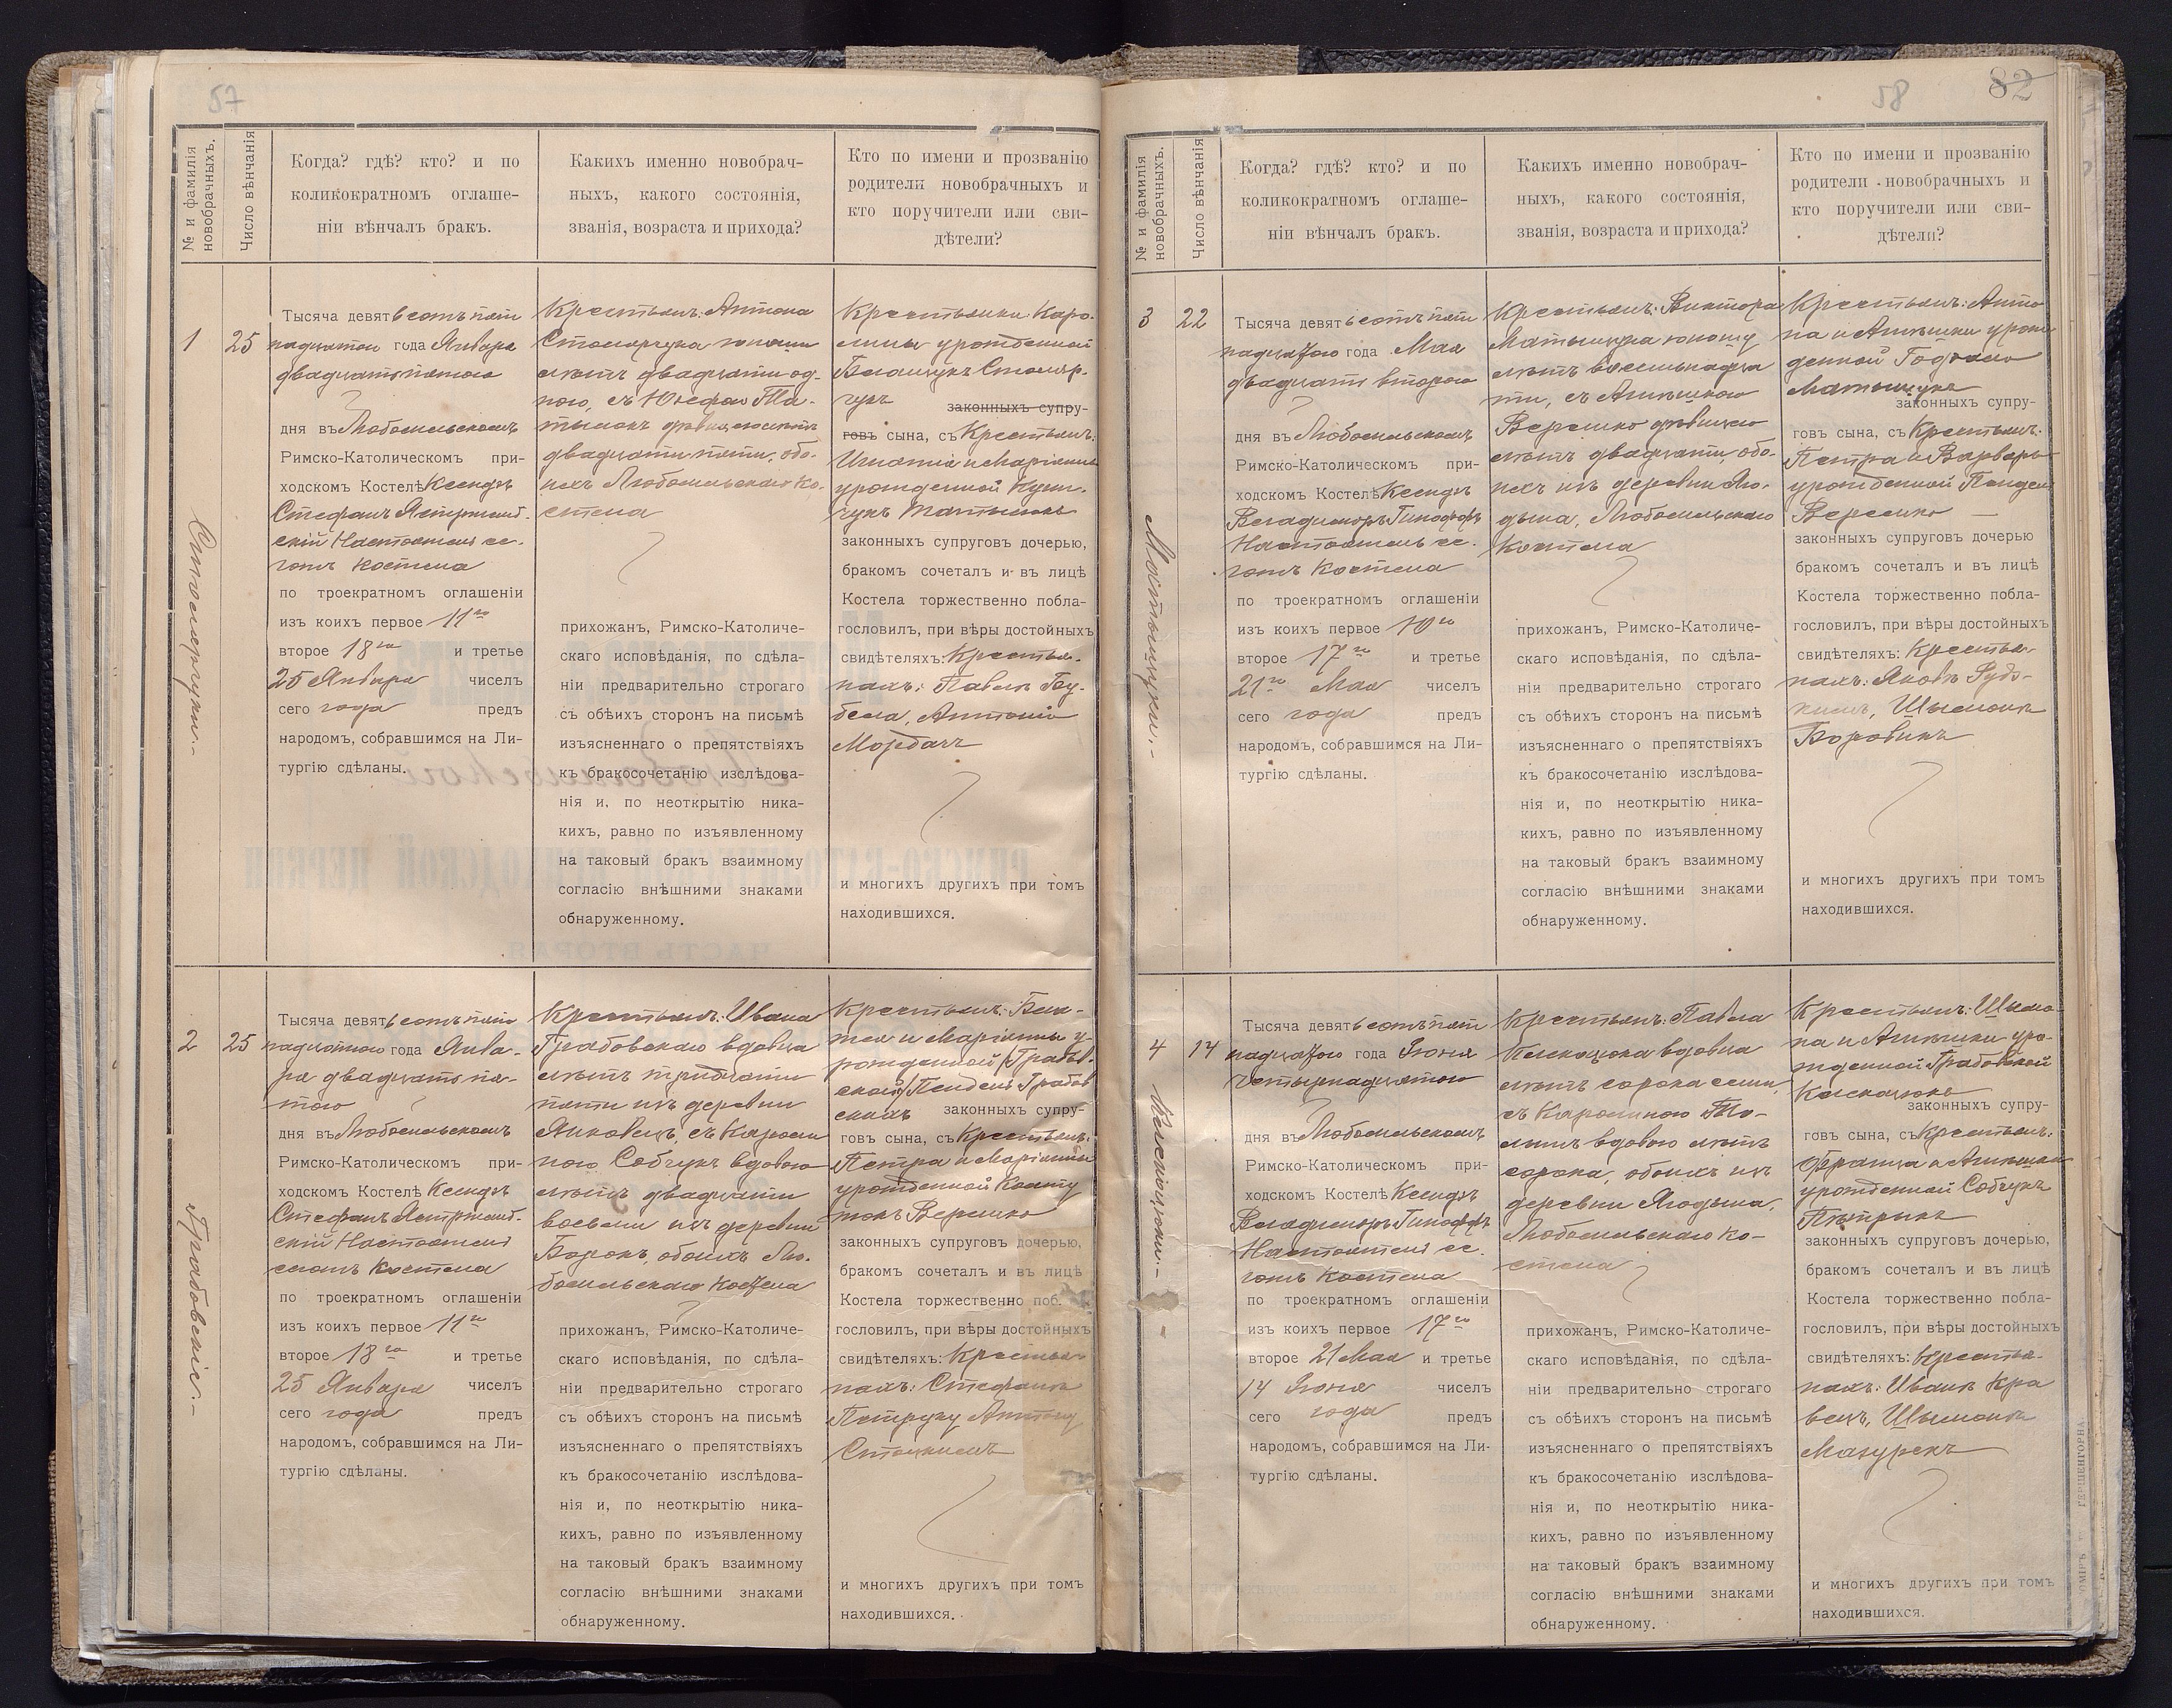 57
№ и фамилія
новобрачныхъ.
Число вѣнчанія
Когда? гдѣ? кто? и по
коликократномъ оглаше-
ніи вѣнчалъ бракъ.
Какихъ именно новобрач-
ныхъ, какого состоянія,
званія, возраста и прихода?
Кто по имени и прозванію
родители новобрачныхъ и
кто поручители или сви-
дѣтели?
1
25
Столярчуки.-
Тысяча девятьсотъ пят
надцатаго года Января
двадцать пятаго
дня въ Любомльскомъ
Римско-Католическомъ при-
ходскомъ Костелѣ Ксендзъ
Стефанъ Ястржемб-
скій Настоятель се-
гожъ Костела
по троекратномъ оглашеніи
изъ коихъ первое 11го
второе 18го и третье
25 Января чиселъ
сего года предъ
народомъ, собравшимся на Ли-
тургію сдѣланы.
Крестьянъ: Антона
Столярчука юношу
лѣтъ двадцати од-
ного, съ Юзефою
двадцати пяти, обо-
ихъ Любомльскаго Ко-
стела
прихожанъ, Римско-Католиче-
скаго исповѣданія, по сдѣла-
ніи предварительно строгаго
съ обѣихъ сторонъ на письмѣ
изъясненнаго о препятствіяхъ
къ бракосочетанію изслѣдова-
нія и, по неоткрытію ника-
кихъ, равно по изъявленному
на таковый бракъ взаимному
согласію внѣшними знаками
обнаруженному.
Крестьянки Каро-
лины урожденной
Столяр-
чукъ законныхъ супру-
говъ сына, съ Крестьянъ:
Игнатія и Маріанны
урожденной
законныхъ супруговъ дочерью,
бракомъ сочеталъ и въ лицѣ
Костела торжественно побла-
гословилъ, при вѣры достойныхъ
свидѣтеляхъ: Крестья-
нахъ: Павлѣ
Антоніѣ
и многихъ другихъ при томъ
находившихся.
2
25
Грабовскіе.-
Тысяча девятьсотъ пят
надцатаго года Янва-
ря двадцать пя-
таго
дня въ Любомльскомъ
Римско-Католическомъ при-
ходскомъ Костелѣ Ксендзъ
Стефанъ Ястржемб-
скій Настоятель
Костела
по троекратномъ оглашеніи
изъ коихъ первое 11го
второе 18го и третье
25 Января чиселъ
сего года предъ
народомъ, собравшимся на Ли-
тургію сдѣланы.
Крестьянъ: Ивана
Грабовскаго вдовца
лѣтъ тридцати
пяти изъ деревни
съ Кароли
ною Собчукъ вдовою
лѣтъ двадцати
восьми изъ деревни
обоихъ Лю-
бомльскаго Костела
прихожанъ, Римско-Католиче-
скаго исповѣданія, по сдѣла-
ніи предварительно строгаго
съ обѣихъ сторонъ на письмѣ
изъясненнаго о препятствіяхъ
къ бракосочетанію изслѣдова-
нія и, по неоткрытію ника-
кихъ, равно по изъявленному
на таковый бракъ взаимному
согласію внѣшними знаками
обнаруженному.
Крестьянъ:
и Маріанны у-
рожденной
Грабов
скихъ законныхъ супру-
говъ сына, съ Крестьянъ:
Петра и Маріанны
урожденной
Веремко
законныхъ супруговъ дочерью,
бракомъ сочеталъ и въ лицѣ
Костела торжественно поб.
гословилъ, при вѣры достойныхъ
свидѣтеляхъ: Крестья-
нахъ: Стефанѣ
и многихъ другихъ при томъ
находившихся.
58
82
№ и фамилія
новобрачныхъ.
Число вѣнчанія
Когда? гдѣ? кто? и по
коликократномъ оглаше-
ніи вѣнчалъ бракъ.
Какихъ именно новобрач-
ныхъ, какого состоянія,
званія, возраста и прихода?
Кто по имени и прозванію
родители новобрачныхъ и
кто поручители или сви-
дѣтели?
3
22
Тысяча девятьсотъ пят
надцатаго года Мая
двадцать второго
дня въ Любомльскомъ
Римско-Католическомъ при-
ходскомъ Костелѣ Ксендзъ
Настоятель се-
гожъ Костела
по троекратномъ оглашеніи
изъ коихъ первое 10го
второе 17го и третье
21го Мая чиселъ
сего года предъ
народомъ, собравшимся на Ли-
тургію сдѣланы.
Крестьянъ: Виктора
юношу
лѣтъ восемнадца
ти, съ Агнѣшкою
Веремко дѣвицею
лѣтъ двадцати, обо-
ихъ изъ деревни Яго-
дына, Любомльскаго
Костела
прихожанъ, Римско-Католиче-
скаго исповѣданія, по сдѣла-
ніи предварительно строгаго
съ обѣихъ сторонъ на письмѣ
изъясненнаго о препятствіяхъ
къ бракосочетанію изслѣдова-
нія и, по неоткрытію ника-
кихъ, равно по изъявленному
на таковый бракъ взаимному
согласію внѣшними знаками
обнаруженному.
Крестьянъ: Анто
на и Агнѣшки урож
денной
законныхъ супру-
говъ сына, съ Крестьянъ:
Петра и Варвары
урожденной
Веремко
законныхъ супруговъ дочерью
бракомъ сочеталъ и въ лицѣ
Костела торжественно побла-
гословилъ, при вѣры достойныхъ
свидѣтеляхъ: Крестья-
нахъ: Яковѣ
Шымонѣ
и многихъ другихъ при томъ
находившихся.
4
14
Тысяча девятьсотъ пят
надцатаго года Іюня
четырнадцатаго
дня въ Любомльскомъ
Римско-Католическомъ при-
ходскомъ Костелѣ Ксендзъ
Настоятель се-
гожъ Костела
по троекратномъ оглашеніи
изъ коихъ первое 17го
второе 21 Мая и третье
14 Іюня чиселъ
сего года предъ
народомъ, собравшимся на Ли-
тургію сдѣланы.
Крестьянъ: Павла
вдовца
лѣтъ сорока семи,
съ Каролиною
вдовою лѣтъ
сорока, обоихъ изъ
деревни Ягодына,
Любомльскаго Ко-
стела
прихожанъ, Римско-Католиче-
скаго исповѣданія, по сдѣла-
ніи предварительно строгаго
съ обѣихъ сторонъ на письмѣ
изъясненнаго о препятствіяхъ
къ бракосочетанію изслѣдова-
нія и, по неоткрытію ника-
кихъ, равно по изъявленному
на таковый бракъ взаимному
согласію внѣшними знаками
обнаруженному.
Крестьянъ: Шымо
на и Агнѣшки уро-
жденной Грабовской
законныхъ супру-
говъ сына, съ Крестьянъ:
Франца и Агнѣшки
урожденной Собчукъ
законныхъ супруговъ дочерью,
бракомъ сочеталъ и въ лицѣ
Костела торжественно побла-
гословилъ, при вѣры достойныхъ
свидѣтеляхъ: Крестья-
нахъ: Иванѣ Кра
вецъ, Шымонѣ
Мазурекъ
и многихъ другихъ при томъ
находившихся.